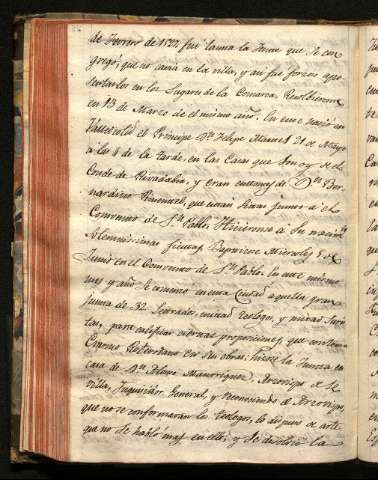 de Febrero de 1527 fue tanta la Gente que se con
gregó, que no cavia en la villa, y así fue forzoso apo
sentarlos en los Lugares de la Comarca. Resolbieron
en 13 de Marzo de el mismo año. En este nació en
Valladolid el Principe Dn. Felipe Martes 21 de Mayo
a las 4 de la tarde, en las Casas que son oy de el
Conde de Rivadabia, y eran entonces de Dn. Ber
nardino Pimentel, que estan junto a el
Convento de Sn. Pablo. Hicieron a su nacimto.
solemnisimas fiestas. Baptizose Miercoles 5 de
Junio en el Convento de Sn. Pablo. En este mismo
mes y año se en esta Ciudad aquella gran
Junta de 32 Letrados, mitad Teologos, y mitad Juris
tas, para calificar ciertas proposiciones que contenia
Erasmo Roterdamo en sus obras: hizose la Junta en
casa de Dn. Alonso Manrriquez, Arzovispo de Se
villa, Inquisidor General, y reconociendo el Arzovispo,
que no se conformaran los Teologos, lo dispuso de arte,
que no se habló mas en ello, y se disolvió la